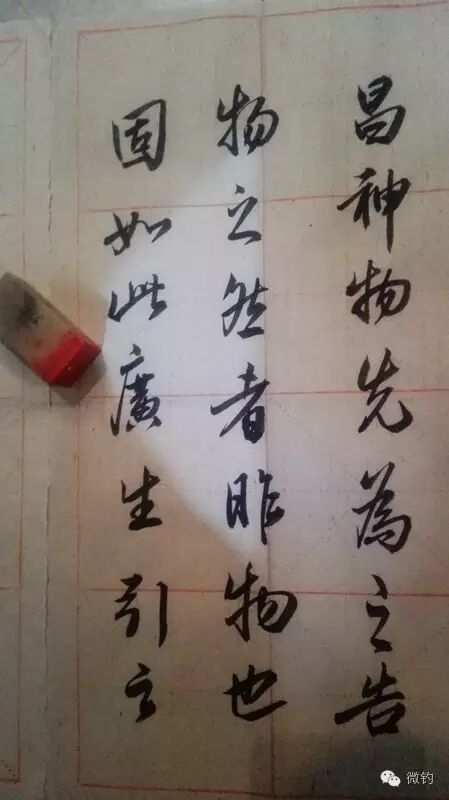 昌神物先為之告
物之然者昨物也
固如此廣生引
微钓